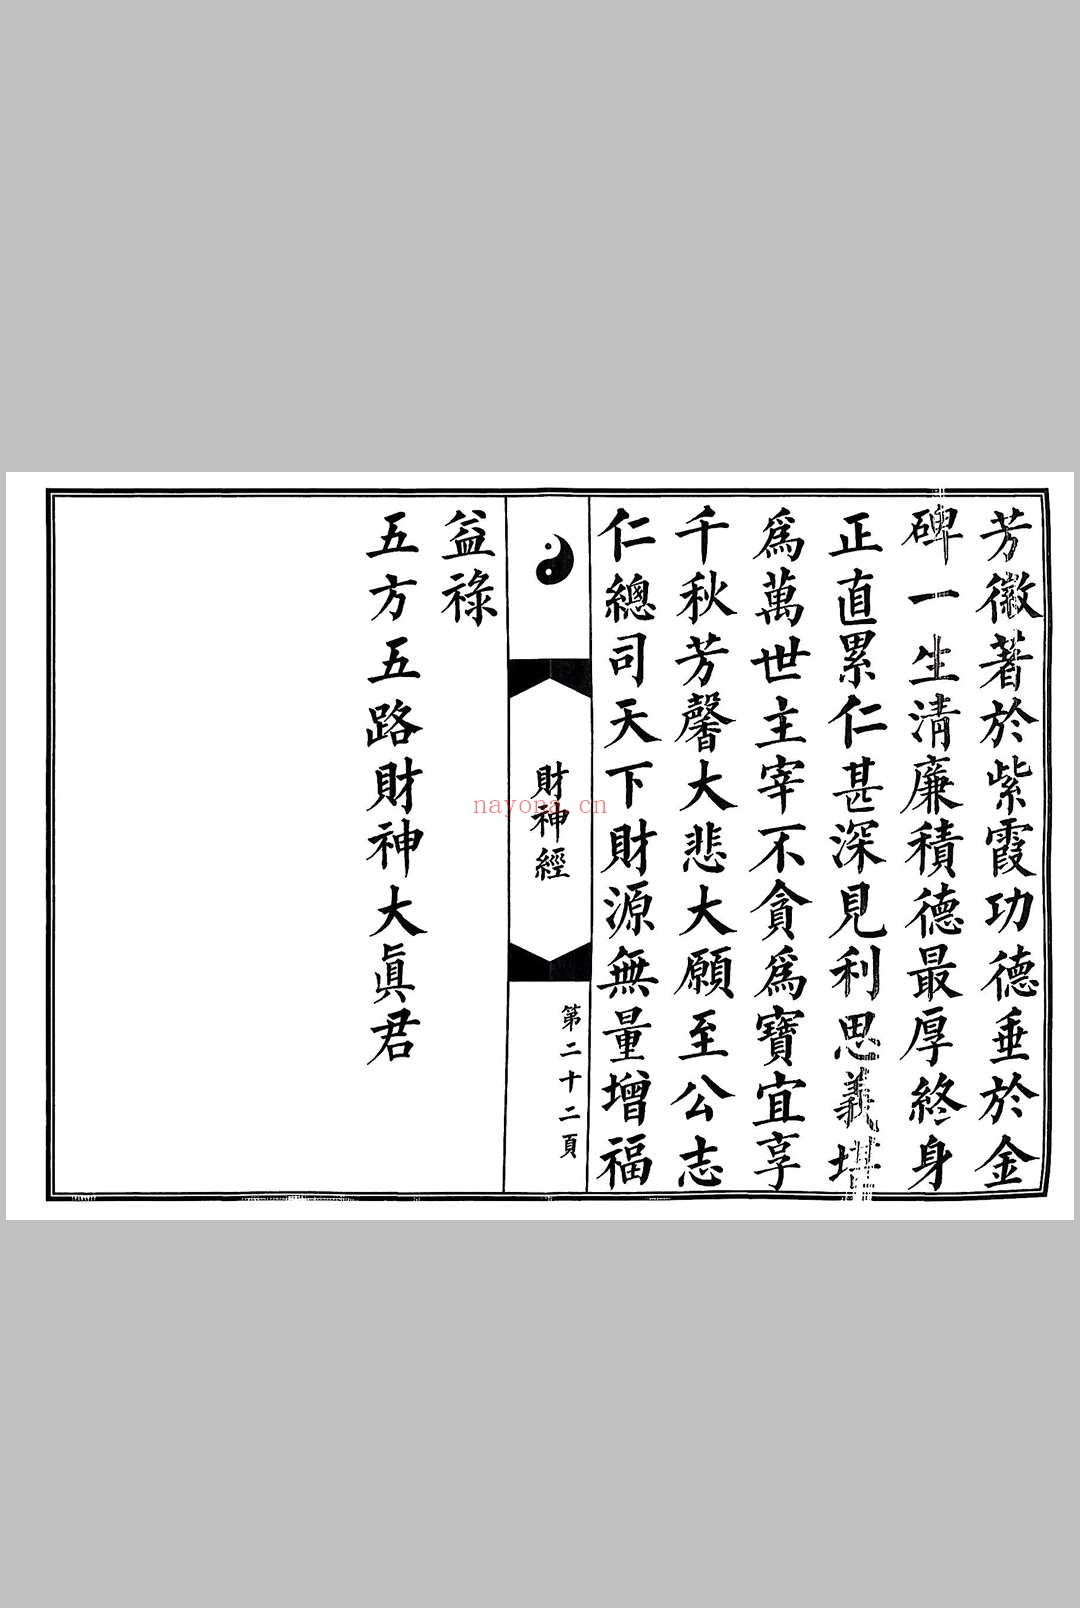 芳徽著於紫霞功德垂於金
碑一生清廉積德最厚終身
正直累仁甚深見利思義堪
爲萬世主宰不貪爲寶宜享
千秋芳馨大悲大願至公志
仁總司天下財源無量增福
財神經
第二十二頁
益祿
五方五路財神大眞君
nayona.cn